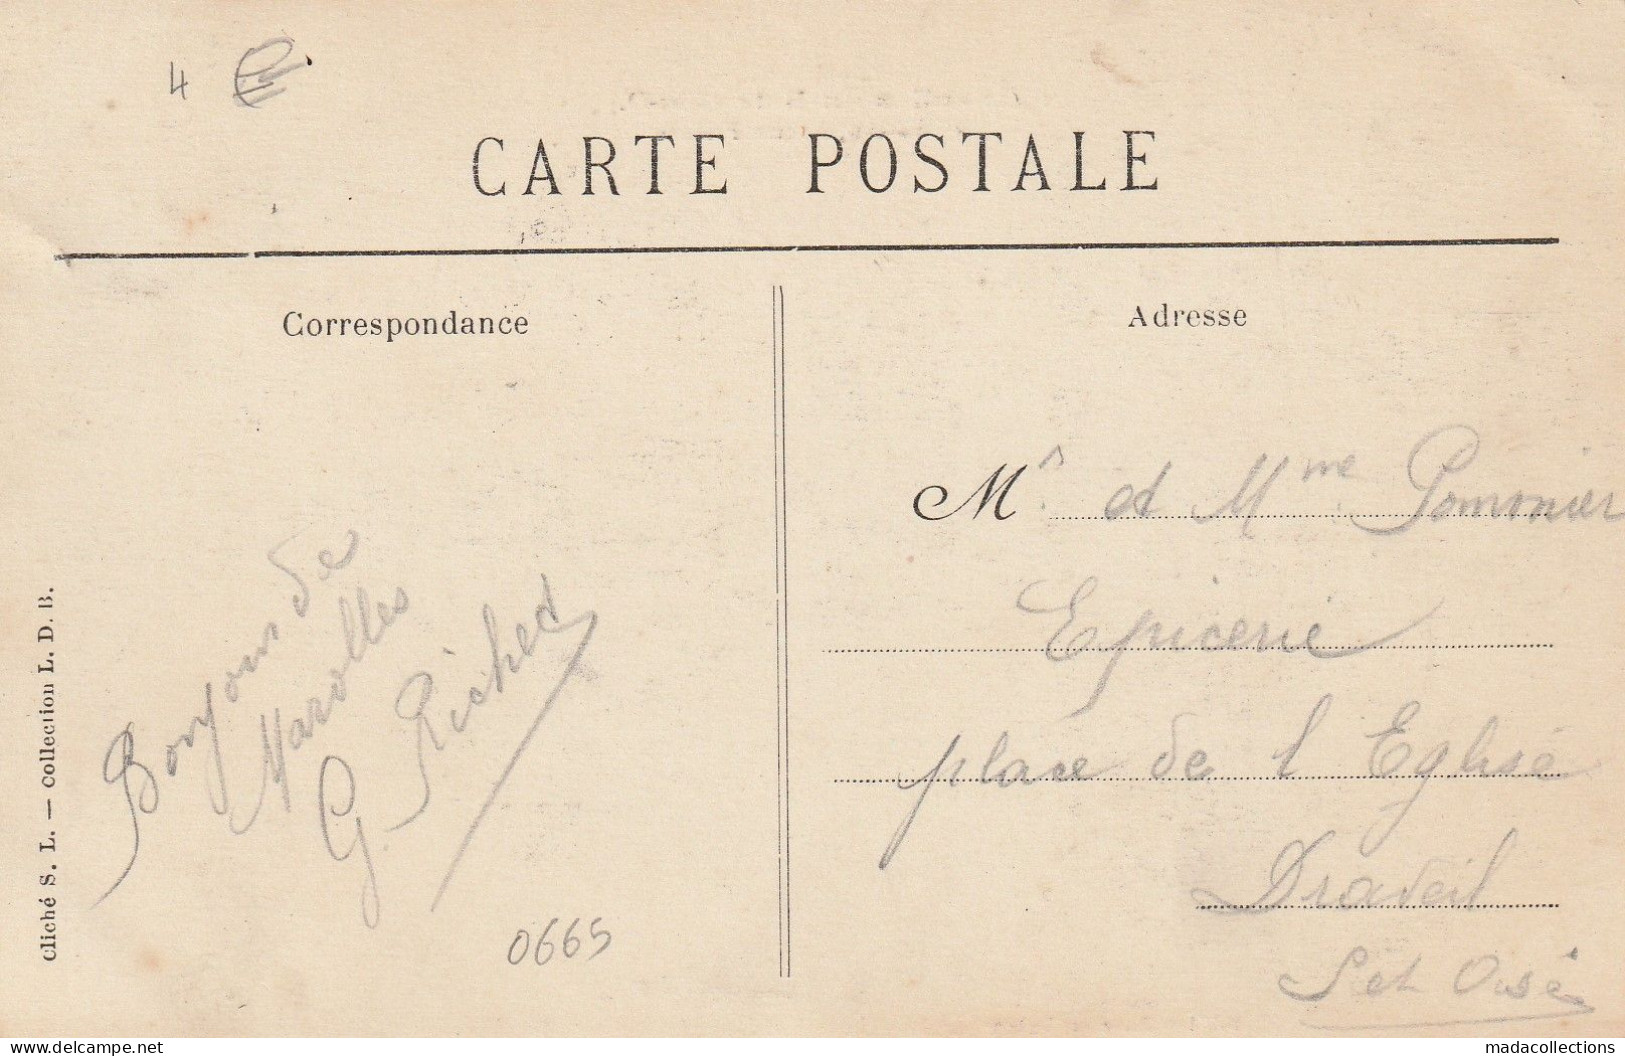 4 €
CARTE POSTALE
Correspondance
Adresse
Bonjour de
Marolles
G. Riched
0665
cliché S. L. — collection L. D. B.
Mr et Mme Pommier
Epicerie
place de l Eglise
Draveil
S et Oise
delcampe.net
madacollections